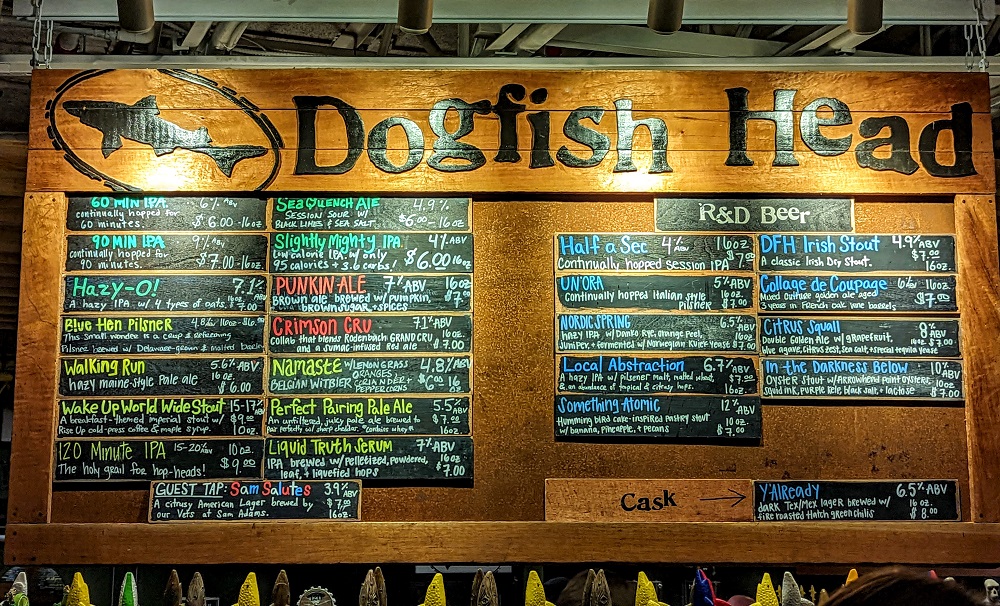 Dogfish Head
60 MIN IPA 6% ABV
continually hopped for
60 minutes. $6.00-16oz
90 MIN IPA 9% ABV
continually hopped for
90 minutes. $7.00-16oz
Hazy-O! 7.1%
A hazy IPA w/ 4 types of oats. 7.00
Blue Hen Pilsner 4.8% 16oz
This small wonder is a crisp & refreshing
Pilsner brewed w/ Delaware-grown & malted
Walking Run 5.6% ABV
hazy maine-style Pale ale 16 oz.
$6.00
Wake Up World Wide Stout 15-17%
A breakfast-themed imperial stout w/ $9.00
Rise Up cold-press coffee & maple syrup. 10oz
120 Minute IPA 15-20% ABV 10oz
The holy grail for hop-heads! $9.00
GUEST TAP: Sam Salutes 3.9% ABV
A citrusy American Lager brewed by $7.00
our Vets at Sam Adams. 16oz.
SeaQuench Ale 4.9%
SESSION SOUR W/
BLACK LIMES & SEA SALT. $6.00 16oz
Slightly Mighty IPA 4% ABV
low calorie IPA w/ only
95 calories + 3.6 carbs! $6.00 16oz
PUNKIN ALE 7% ABV
Brown ale brewed w/ pumpkin, 16oz
brown sugar, + spices $7.00
Crimson Cru 7.1% ABV
Collab that blends Rodenbach GRAND CRU 16oz
and a sumac-infused red ale $7.00
Namaste W/LEMON GRASS 4.8% ABV
ORANGES
BELGIAN WITBIER CORIANDER + $6.00 16oz
PEPPERCORNS
Perfect Pairing Pale Ale 5.5% ABV
An unfiltered, juicy pale ale brewed to 16oz
pair perfectly w/ sharp cheddar. *contains whey* $7.00
Liquid Truth Serum 7% ABV
IPA brewed w/ pelletized, powdered, 16oz
leaf, + liquefied hops $7.00
R&D Beer
Half a Sec 4% ABV 16oz
Continually hopped session IPA $7.00
UN'ORA 5% ABV
continually hopped Italian style 16oz
Pilsner $7.00
NORDIC SPRING 6.5% ABV
hazy IPA w/ Danko Rye, orange peel, 16oz
Juniper, + fermented w/ Norwegian Kveik Yeast $7.00
Local Abstraction 6.7% ABV
A hazy IPA w/ pilsener malt, malted wheat, 16oz
& an abundance of tropical & citrusy hops. $7.00
Something Atomic 12% ABV
Humming bird cake-inspired pastry stout 16oz
w/ banana, pineapple, + pecans $7.00
DFH Irish Stout 4.9% ABV
A classic Irish Dry Stout. $7.00
16oz.
Collage de Coupage 16oz
Mixed culture golden ale aged
years in French oak wine barrels $7.00
Citrus Squall 8% ABV
Double Golden Ale w/ grapefruit, 16oz $7.00
blue agave, citrus zest, sea salt, + special tequila yeast
In the Darkness Below 10% ABV
OYSTER STOUT w/ Arrowhead Point OYSTERS, 16oz
squid ink, purple kale, black salt, + lactose $7.00
Cask
Y'Already 6.5% ABV
dark Tex/Mex lager brewed w/ 16 oz.
fire roasted Hatch green chilis $8.00